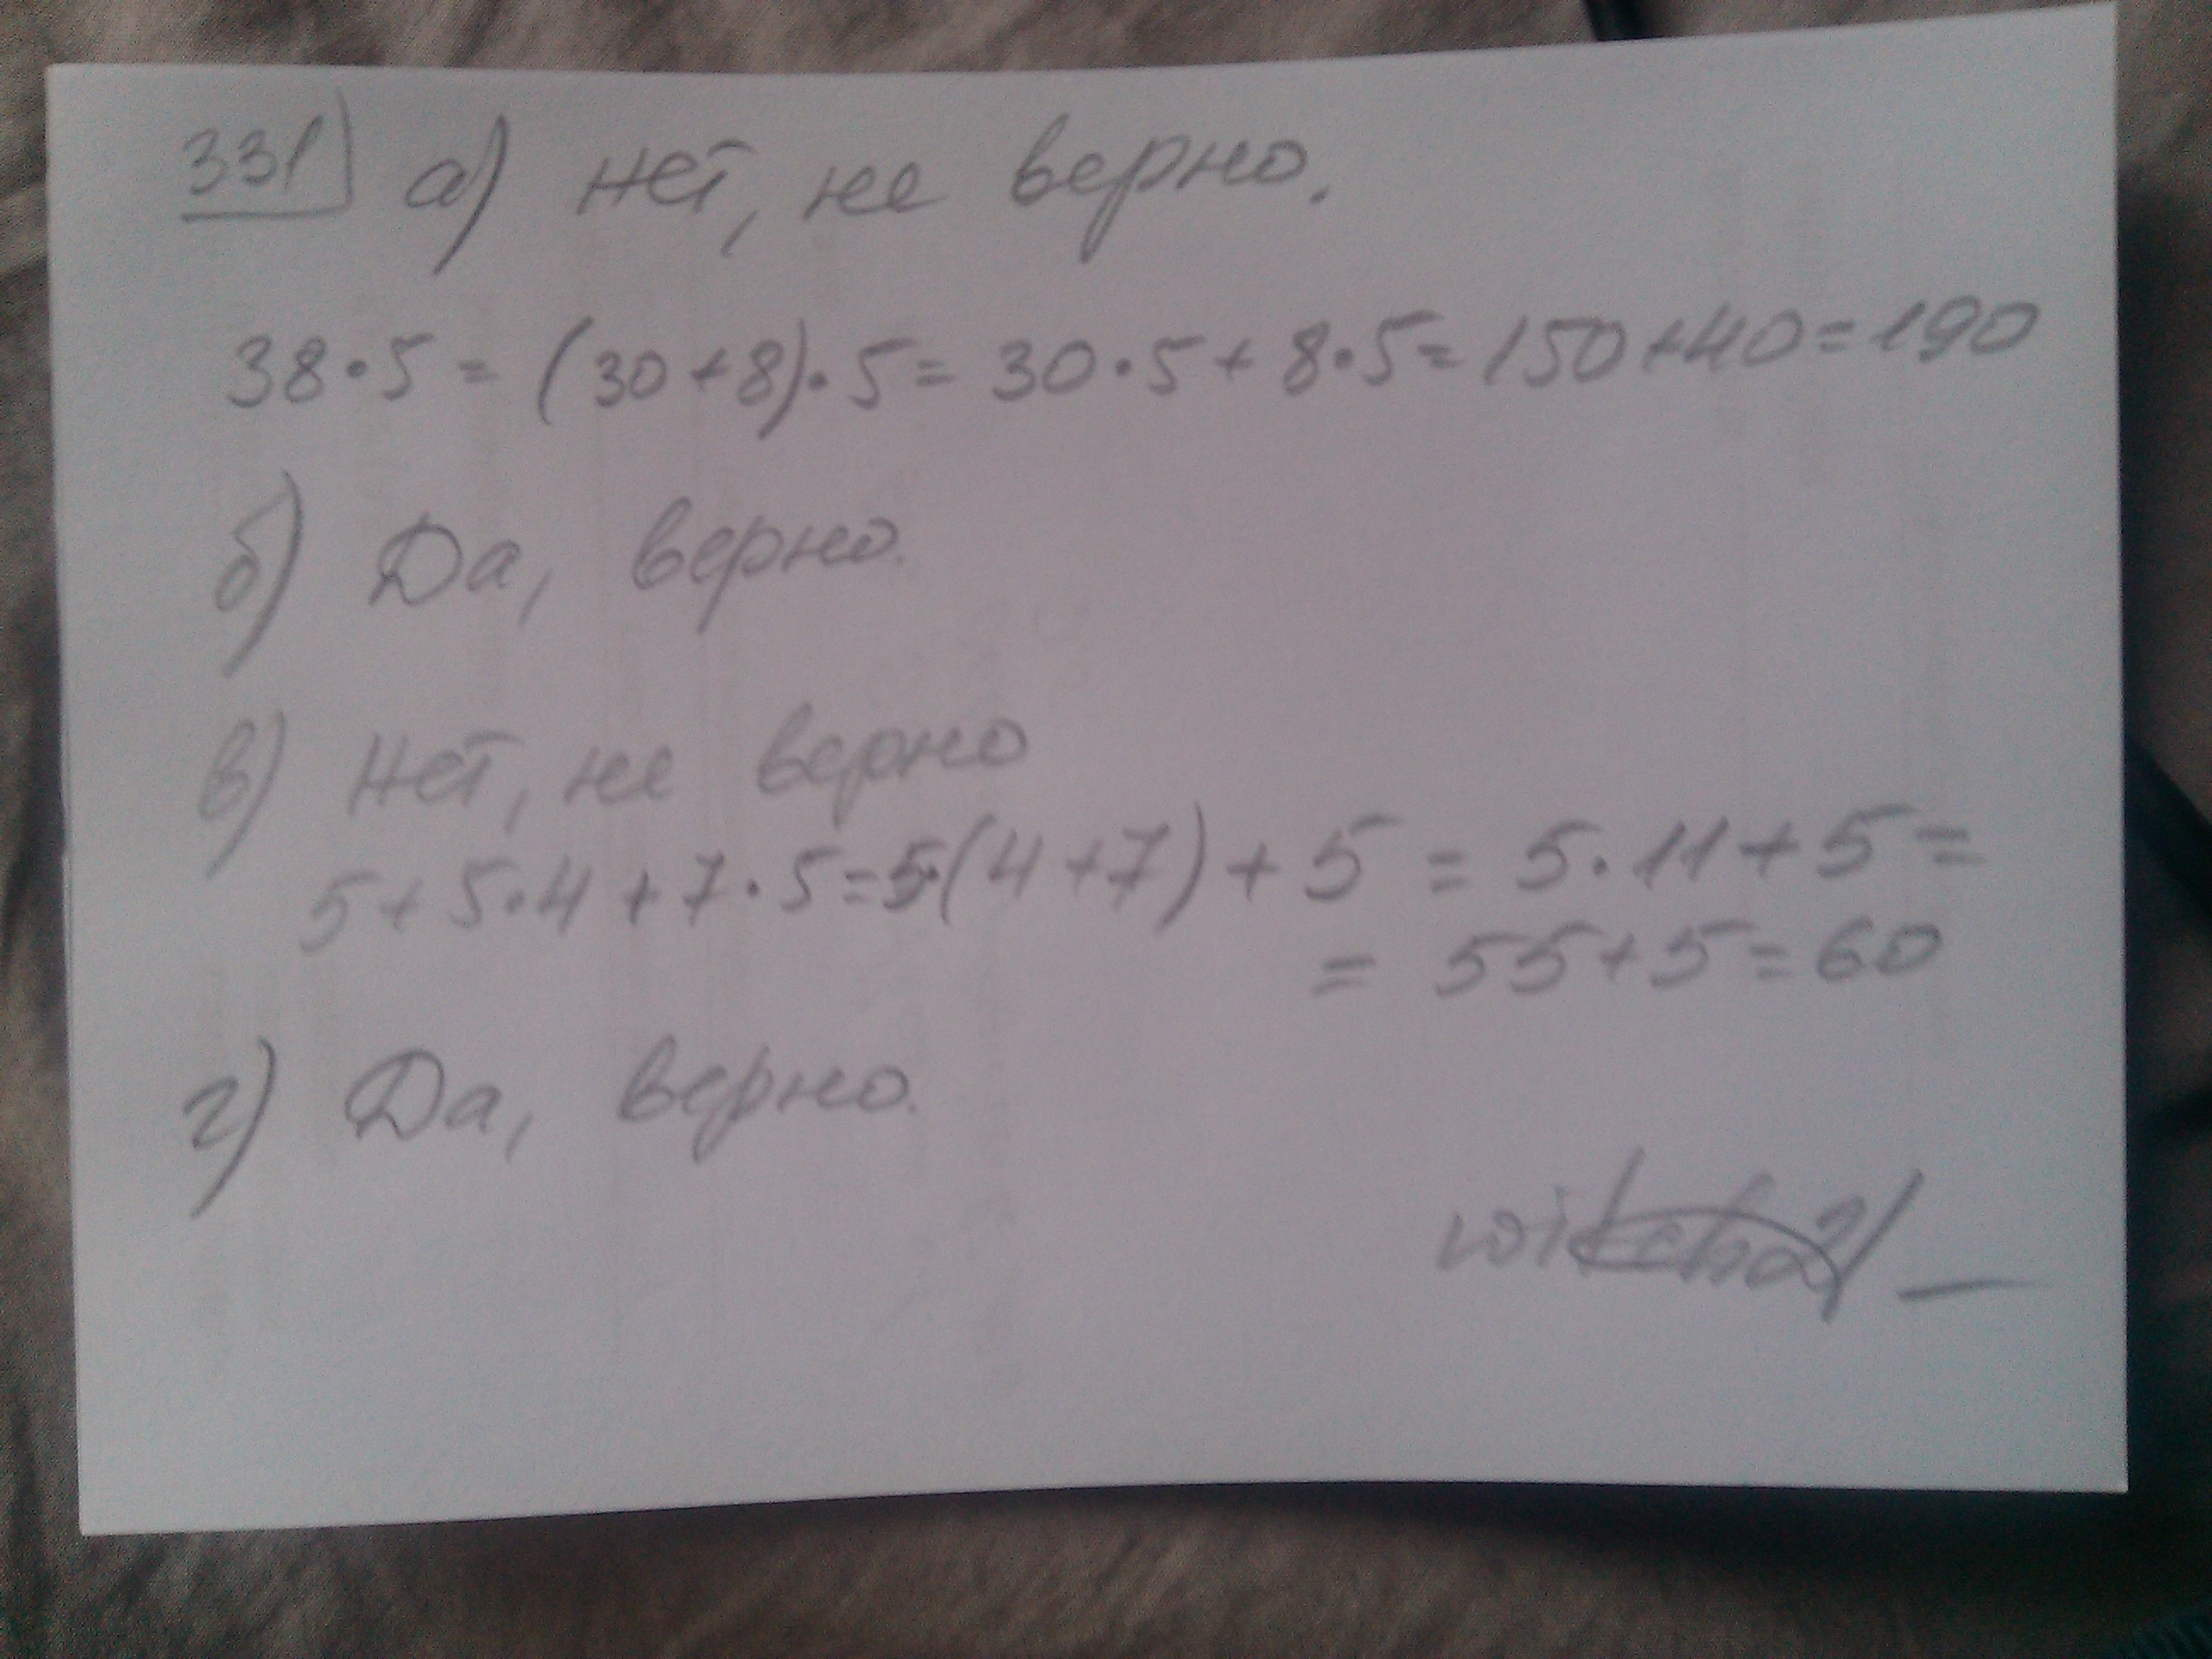 331 а) нет, не верно.
38·5 = (30+8)·5 = 30·5 + 8·5 = 150+40 = 190
б) Да, верно.
в) Нет, не верно
5+5·4+7·5=5·(4+7)+5 = 5·11+5=
= 55+5=60
г) Да, верно.